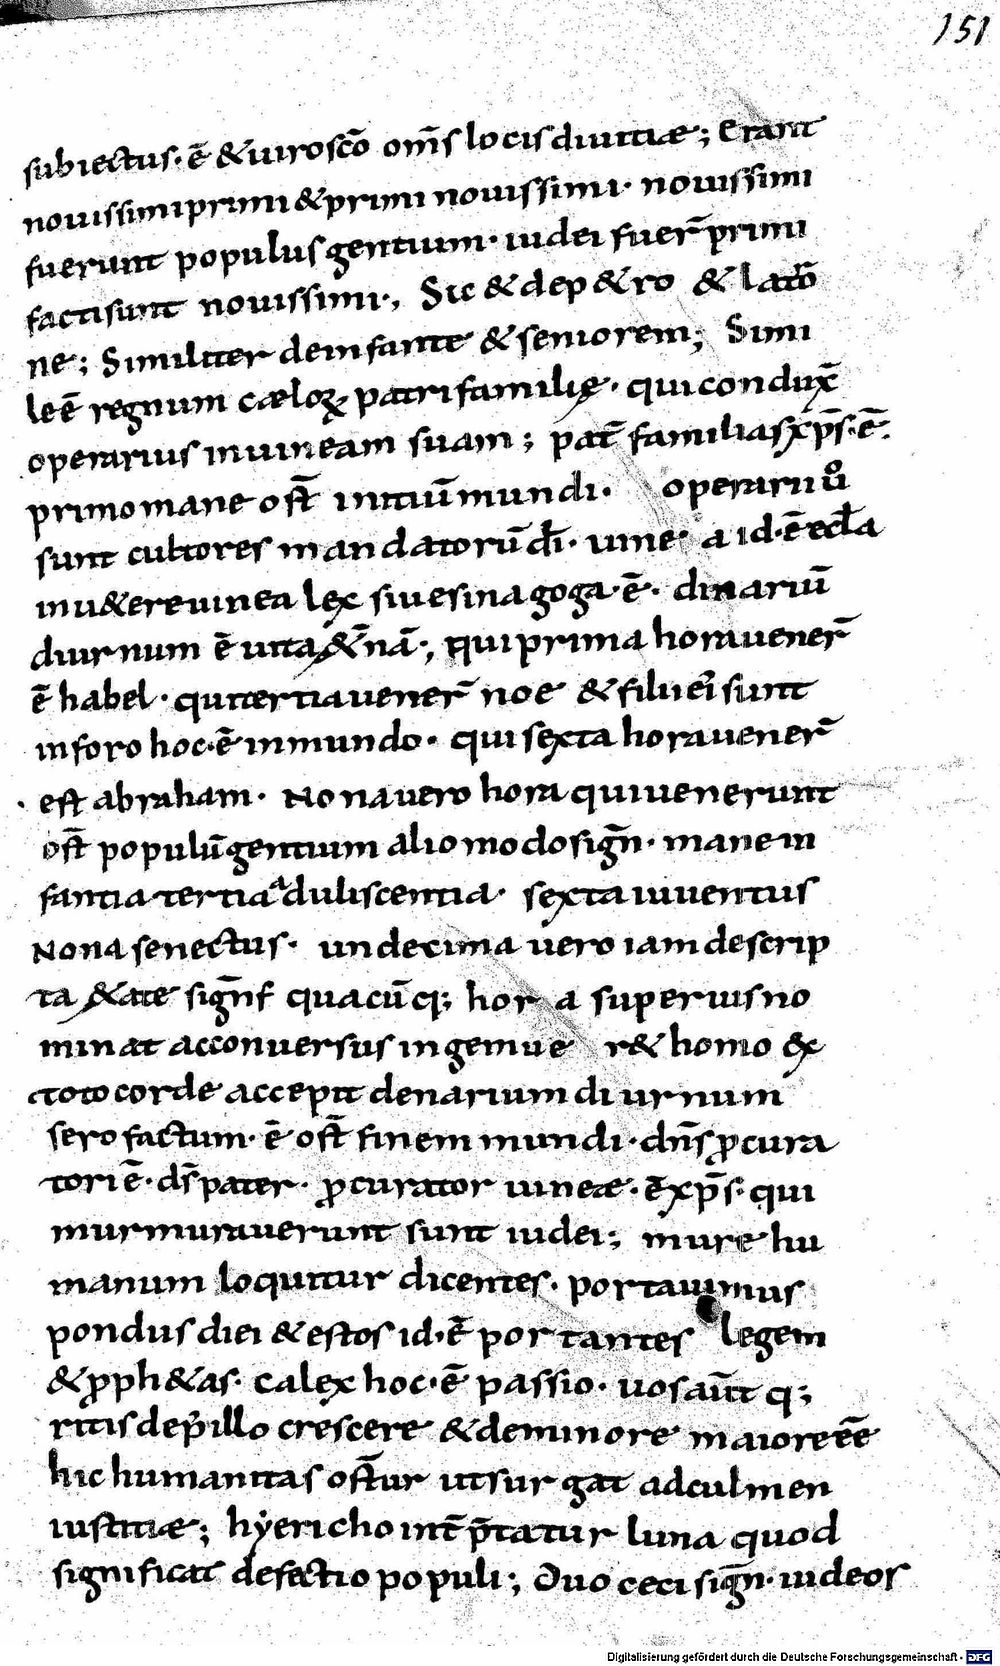 151
subiectus · ē & uiroscō om̄s locis diuitiae ; Erant
nouissimi primi & primi nouissimi · nouissimi
fuerunt populus gentium · iudei fuer̄ primi
facti sunt nouissimi · , Sic & de p&ro & latrō
ne ; Similiter de infante & seniorem ; Simi
le ē regnum caeloꝝ patri familię · qui condux̄
operarius in uineam suam ; pat̄ familias xp̄s · ē ·
primo mane ost̄ initiū mundi · operarii ů
sunt cultores mandatorū d̄i · uinea id · ē eccła
in u&ere uinea lex siue sinagoga · ē · dinariū
diurnum ē uita &̄nā · , qui prima hora uener̄
ē habel · qui tertia uener̄ noe & filii ei sunt
in foro hoc · ē in mundo · qui sexta hora uener̄
· est abraham · Nona uero hora qui uenerunt
ost̄ populū gentium alio modo sign̄ · mane in
fantia tertia aduliscentia · sexta iuuentus
Nona senectus · undecima uero iam descrip
ta &ate sign̄f quacūq; hora superuis no
minat ac conuersus ingemue r& homo ex
toto corde accepit denarium diurnum
sero factum · ē ost̄ finem mundi · dn̄s ꝓcura
tori ē · d̄s pater · ꝓcurator uineae · ē xp̄s · qui
murmurauerunt sunt iudei ; mure hu
manum loquitur dicentes · portauimus
pondus diei & estos id · ē portantes legem
& ꝓph&as · calex hoc · ē passio · uos aūt q;
ritis de p̄illo crescere & de minore maiore ēē
hic humanitas ost̄ur ut surgat ad culmen
iustitiae ; hyericho int̄ p̄tatur luna quod
significat defectio populi ; Duo ceci sign̄ · iudeor
Digitalisierung gefördert durch die Deutsche Forschungsgemeinschaft - DFG